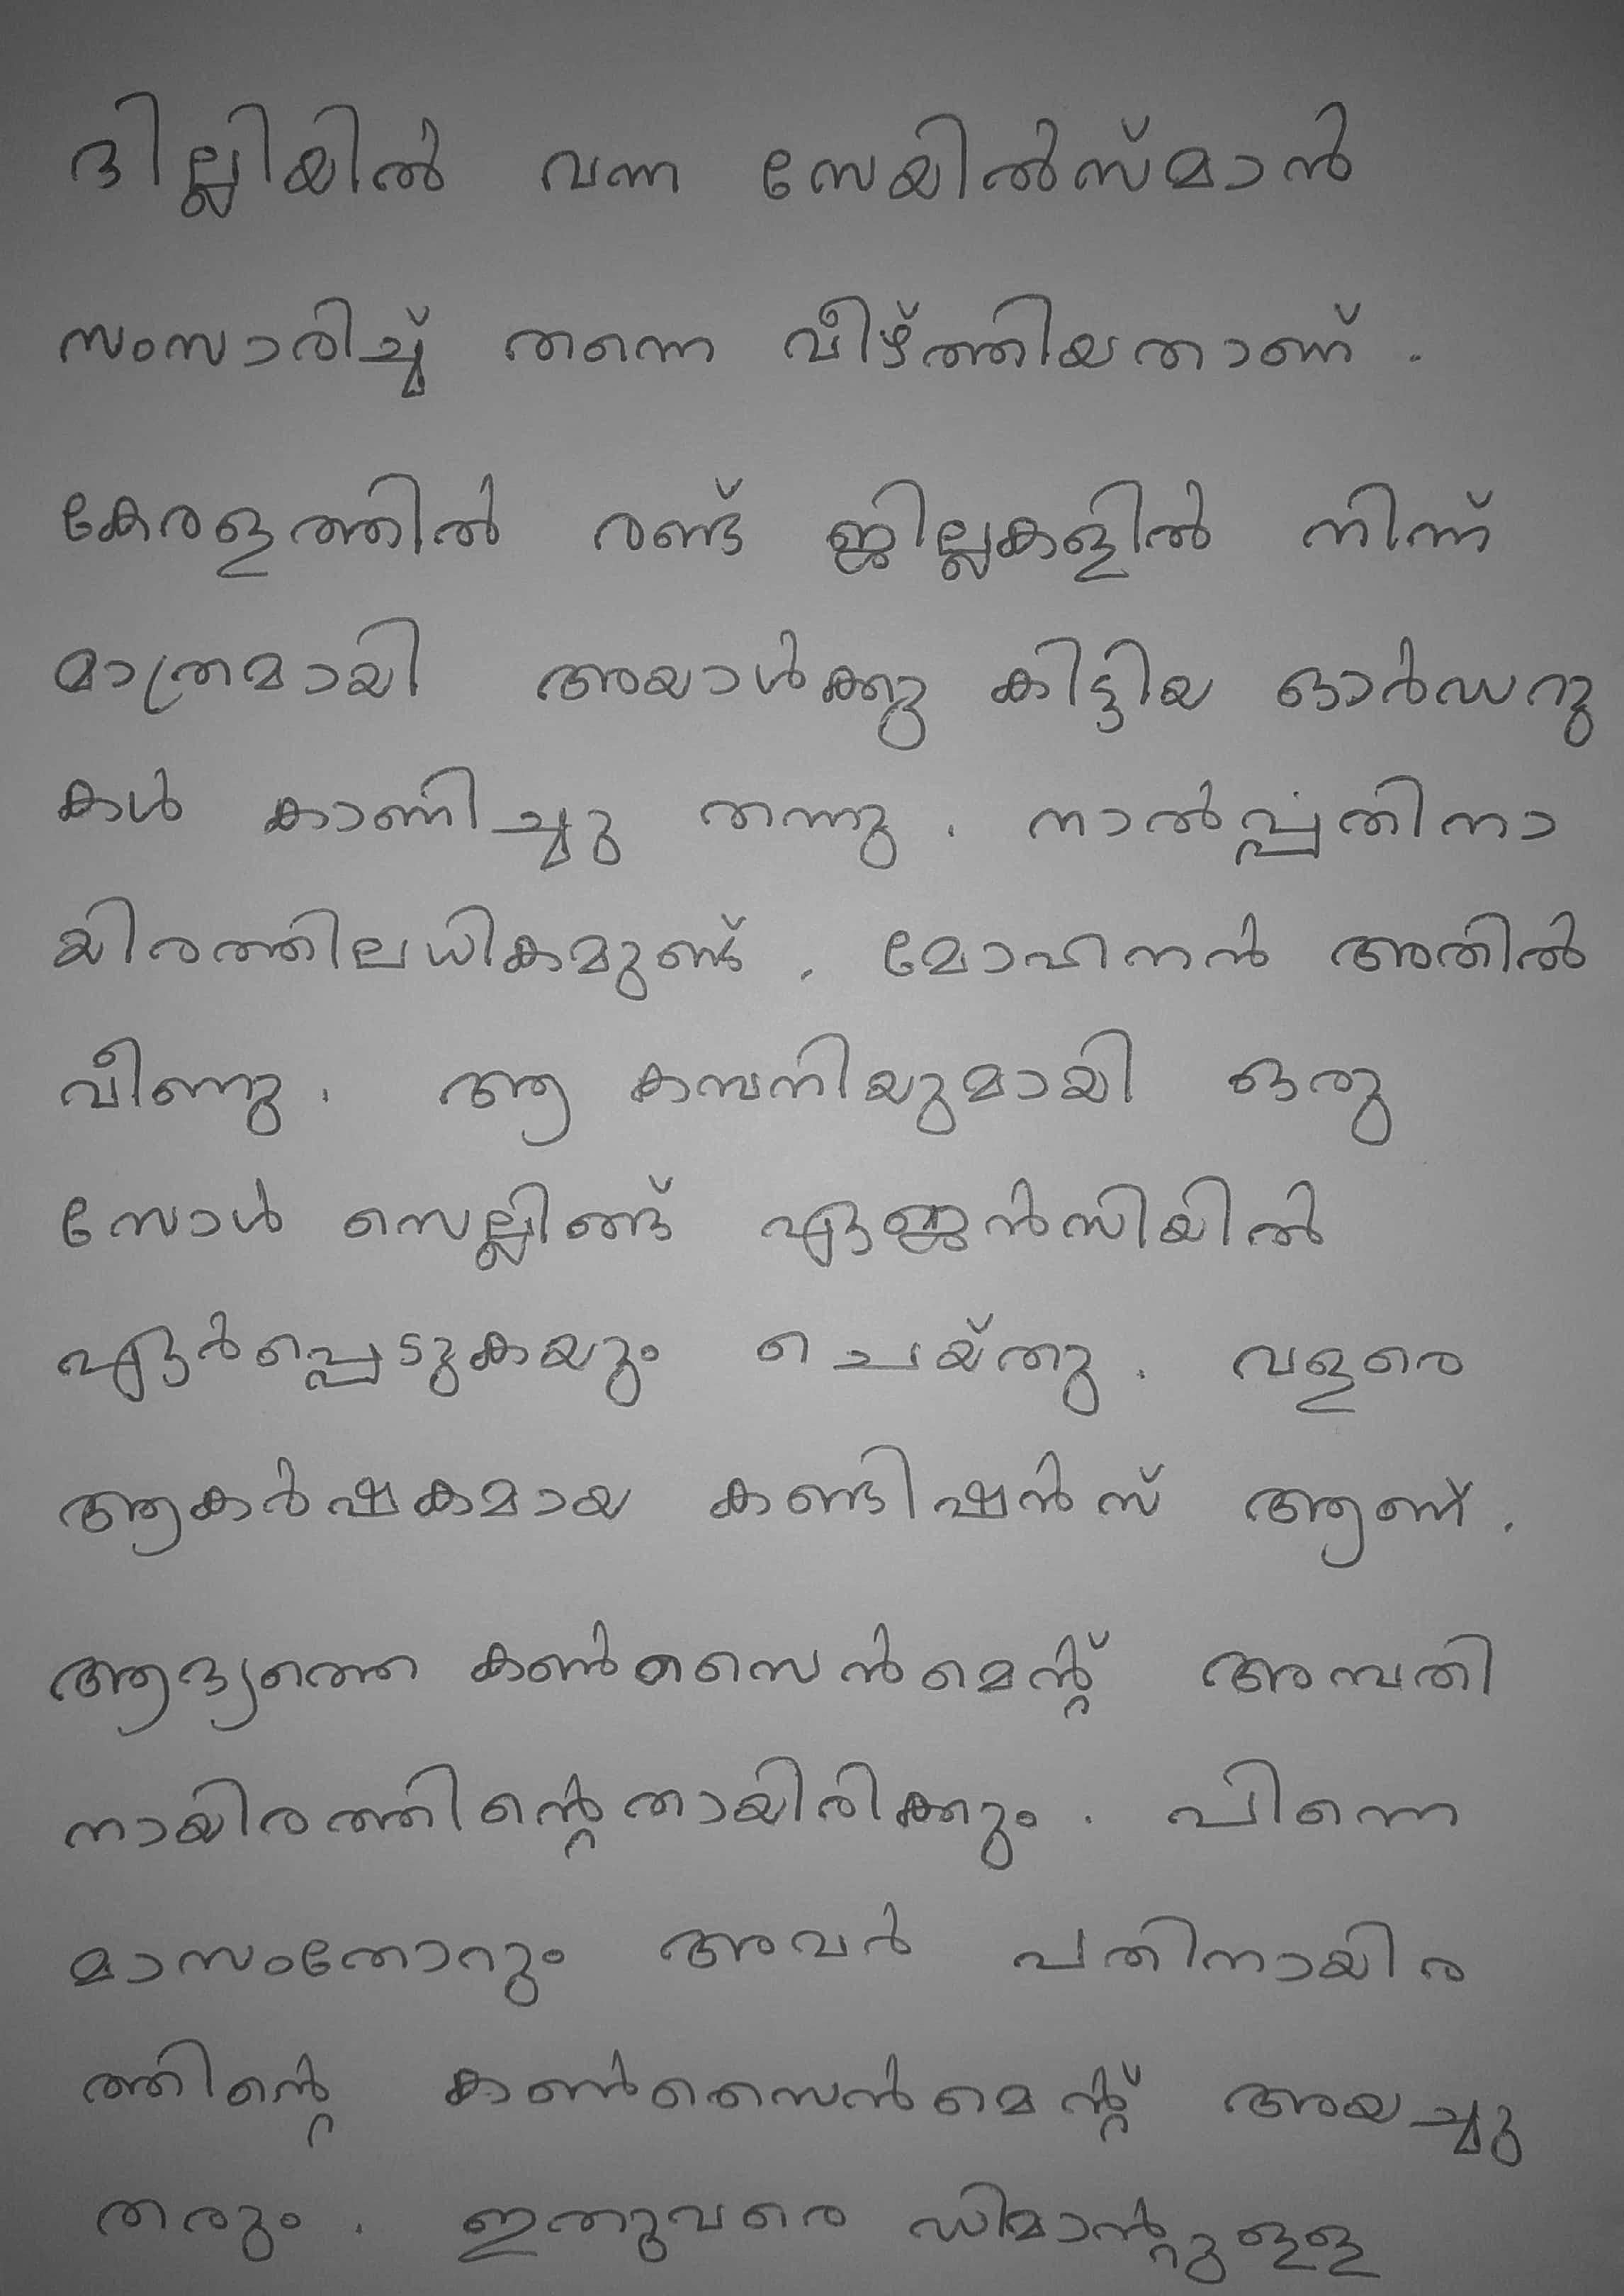 ദില്ലിയിൽ വന്ന സേയിൽസ്മാൻ
സംസാരിച്ച് തന്നെ വീഴ്ത്തിയതാണ് .
കേരളത്തിൽ രണ്ട് ജില്ലകളിൽ നിന്ന്
മാത്രമായി അയാൾക്കു കിട്ടിയ ഓർഡറു
കൾ കാണിച്ചു തന്നു . നാൽപ്പതിനാ
യിരത്തിലധികമുണ്ട് . മോഹനൻ അതിൽ
വീണു . ആ കമ്പനിയുമായി ഒരു
സോൾ സെല്ലിങ്ങ് ഏജൻസിയിൽ
ഏർപ്പെടുകയും ചെയ്തു . വളരെ
ആകർഷകമായ കണ്ടിഷൻസ് ആണ് .
ആദ്യത്തെ കൺസൈൻമെന്റ് അമ്പതി
നായിരത്തിന്റെതായിരിക്കും . പിന്നെ
മാസംതോറും അവർ പതിനായിര
ത്തിന്റെ കൺസൈൻമെന്റ് അയച്ചു
തരും . ഇതുവരെ ഡിമാന്റുള്ള